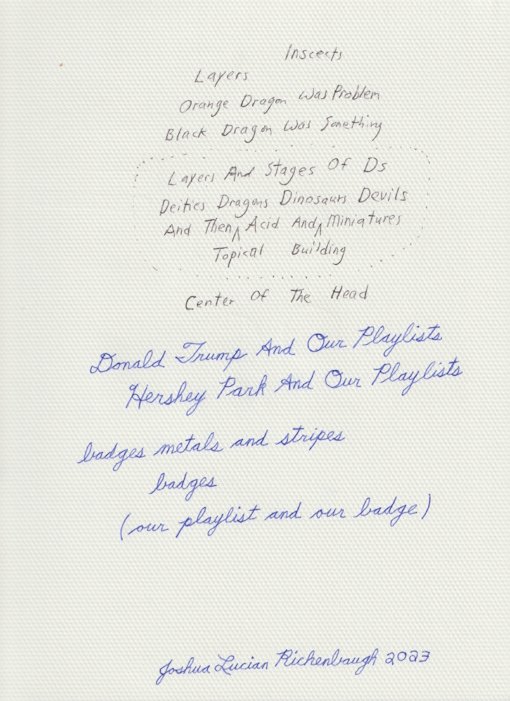 Inscects
Layers
Orange Dragon Was Problem
Black Dragon Was Something
Layers And Stages Of Ds
Deities Dragons Dinosaurs Devils
And Then Acid And Miniatures
Topical Building
Center Of The Head
Donald Trump And Our Playlists
Hershey Park And Our Playlists
badges metals and stripes
badges
(our playlist and our badge)
Joshua Lucian Richenbaugh 2023